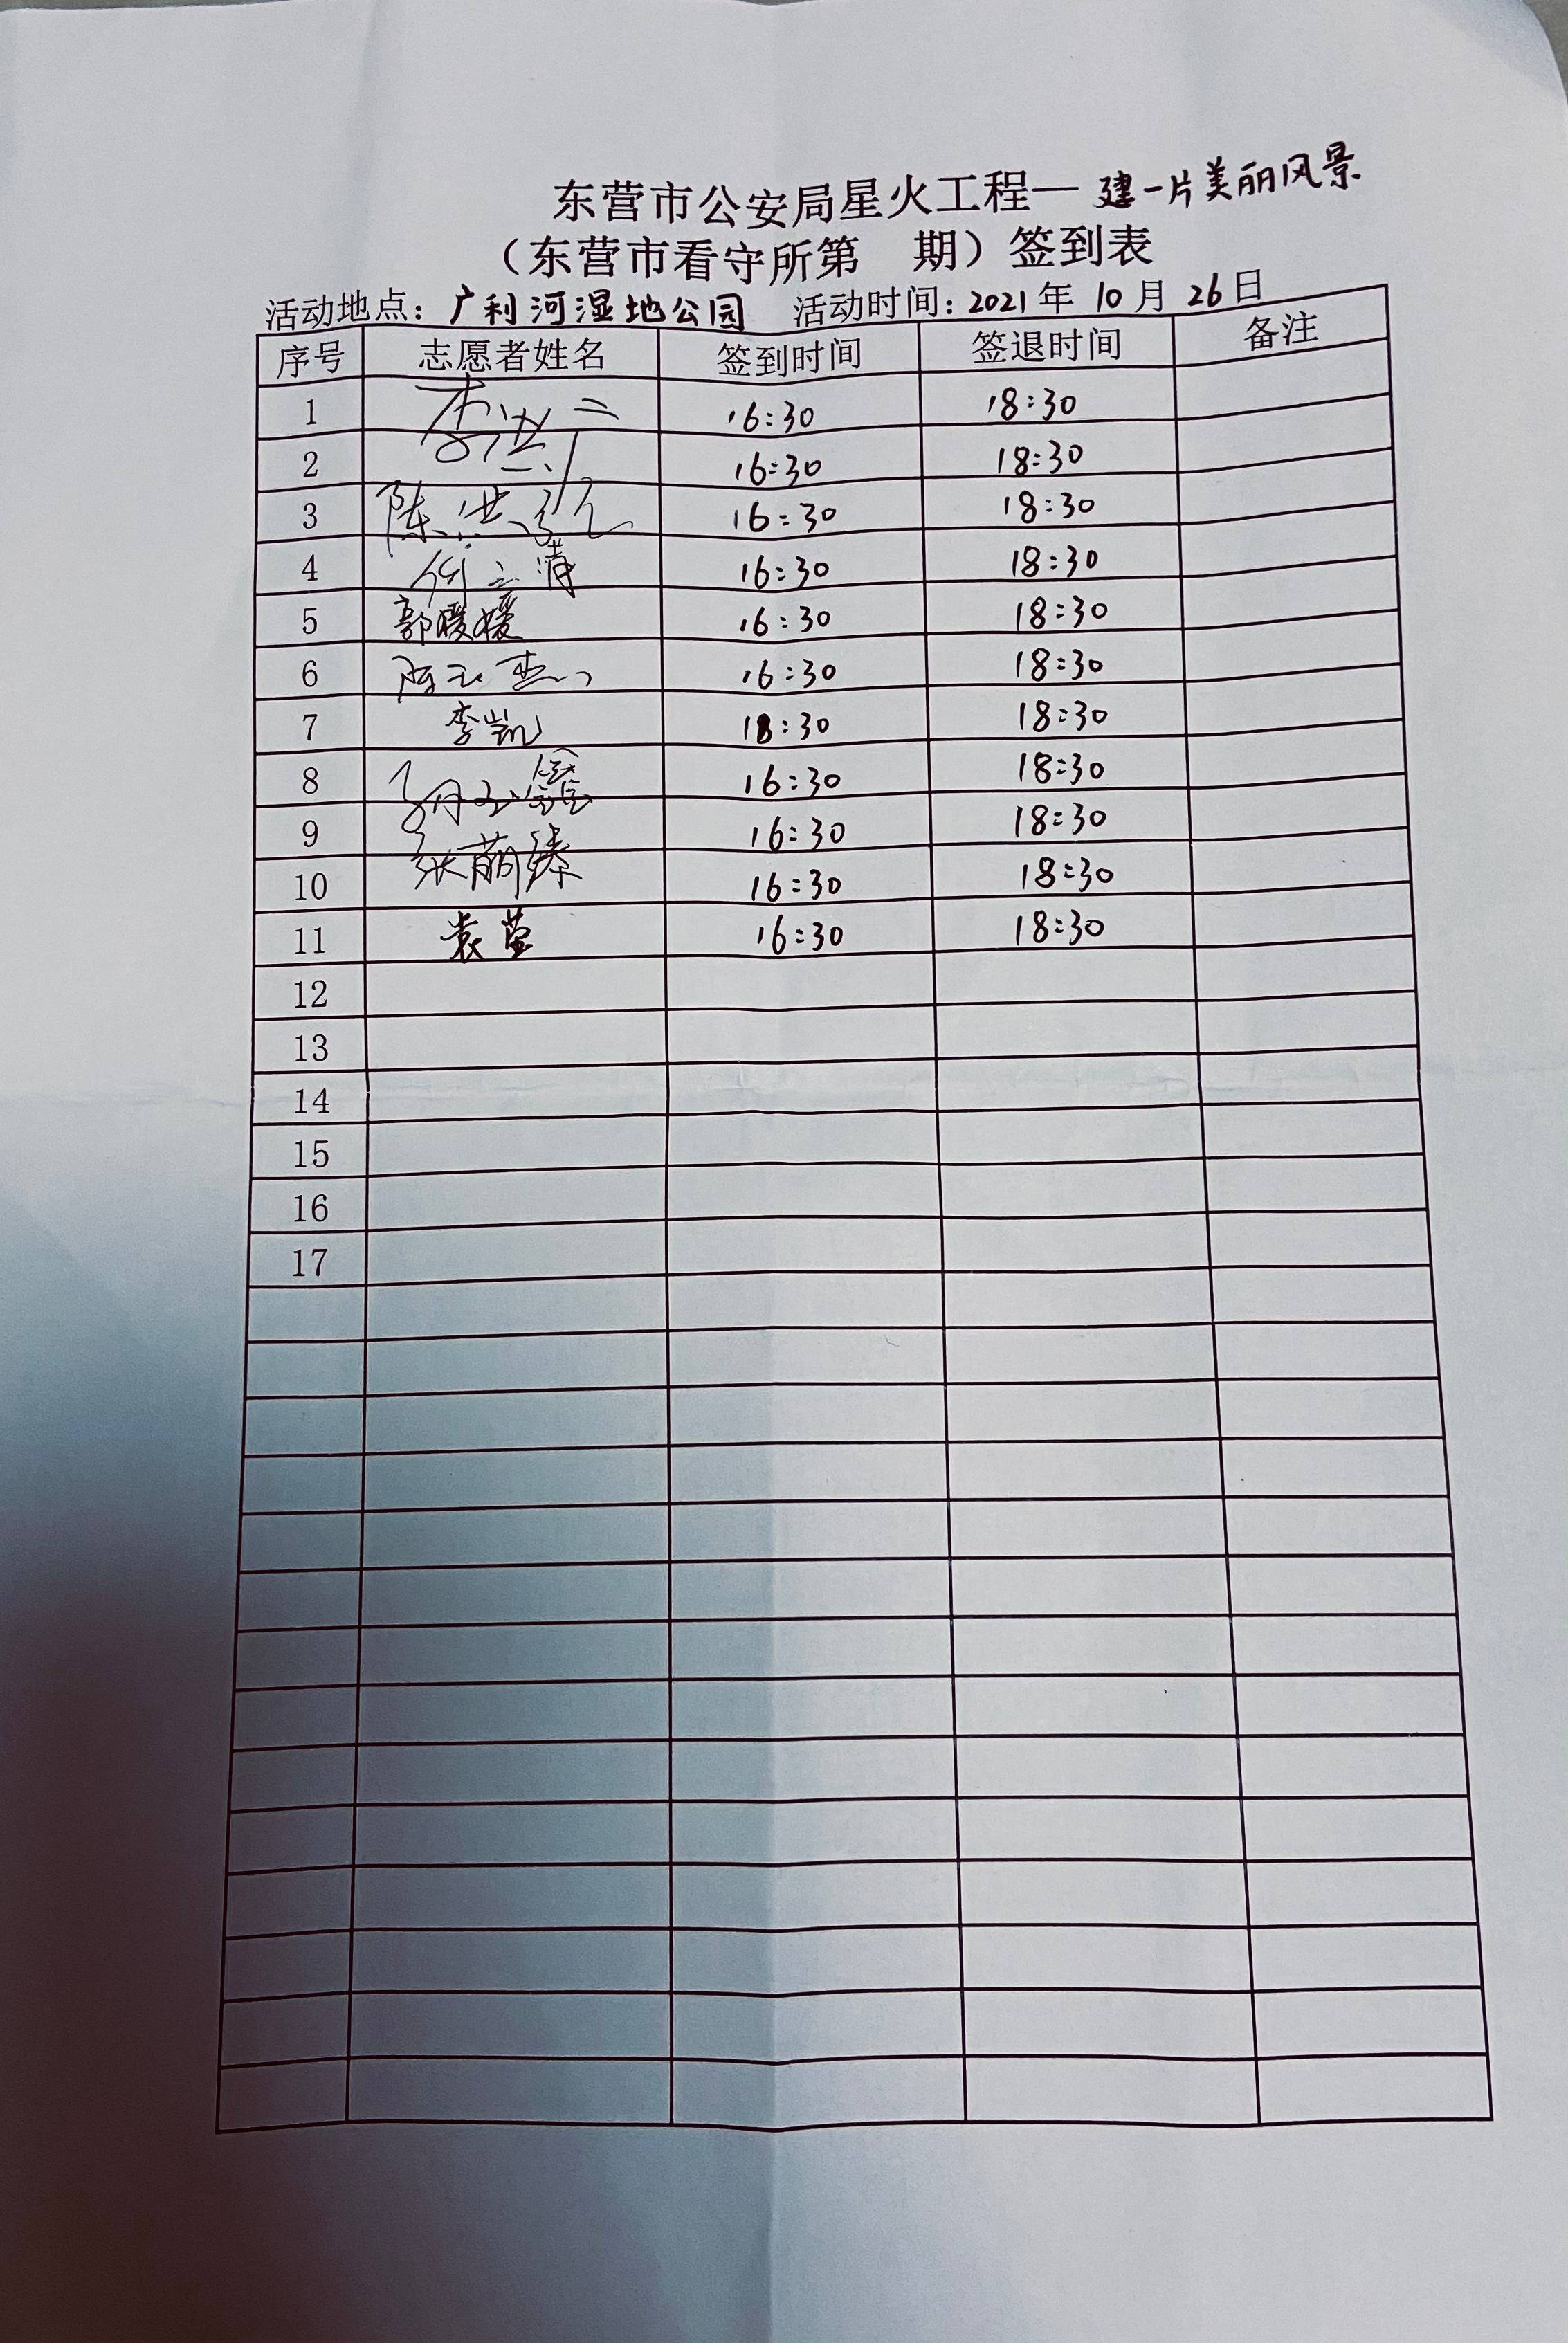 东营市公安局星火工程—建一片美丽风景
（东营市看守所第 期）签到表
活动地点：广利河湿地公园 活动时间：2021年 10月 26日
序号 志愿者姓名 签到时间 签退时间 备注
1 16:30 18:30
2 16:30 18:30
3 陈洪 16:30 18:30
4 16:30 18:30
5 郭媛媛 16:30 18:30
6 16:30 18:30
7 李凯 18:30 18:30
8 16:30 18:30
9 16:30 18:30
10 张萌臻 16:30 18:30
11 袁莹 16:30 18:30
12
13
14
15
16
17